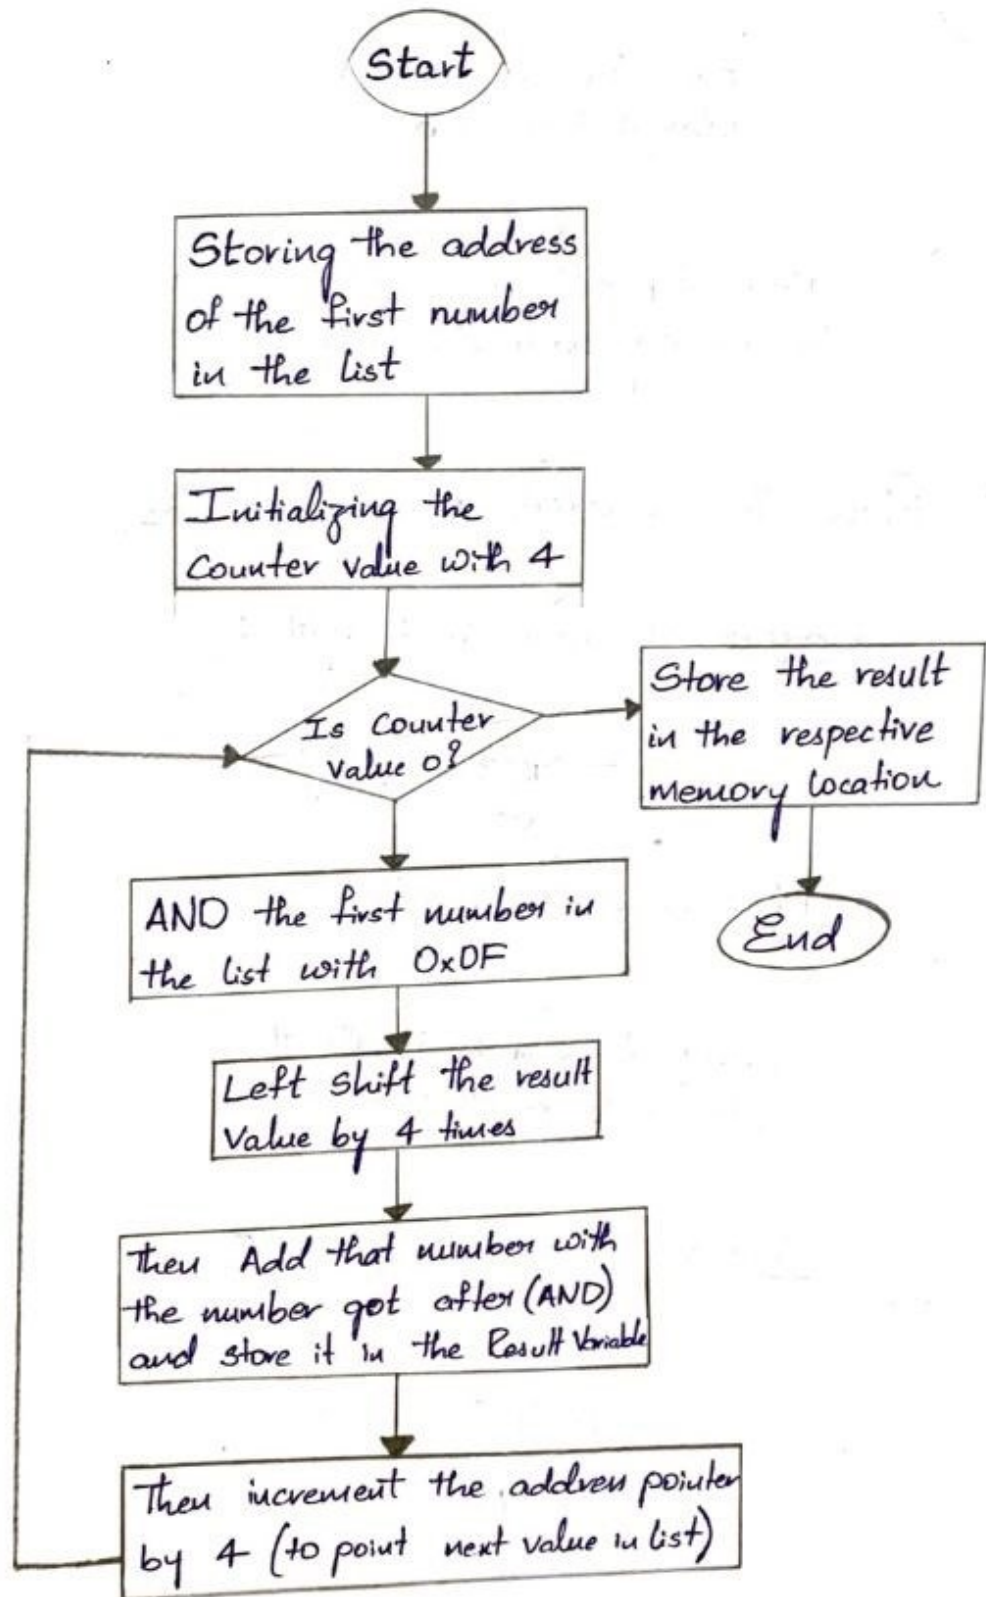 Start
Storing the address
of the first number
in the list
Initializing the
Counter value with 4
Is Counter
Value 0?
Store the result
in the respective
memory location
End
AND the first number in
the list with 0x0F
Left shift the result
Value by 4 times
Then Add that number with
the number got after (AND)
and store it in the Result Variable
Then increment the addres pointer
by 4 (to point next value in list)